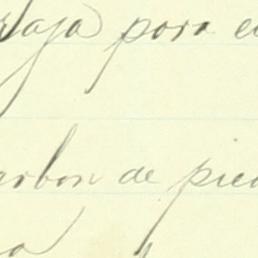 raja para e
arbon de pied